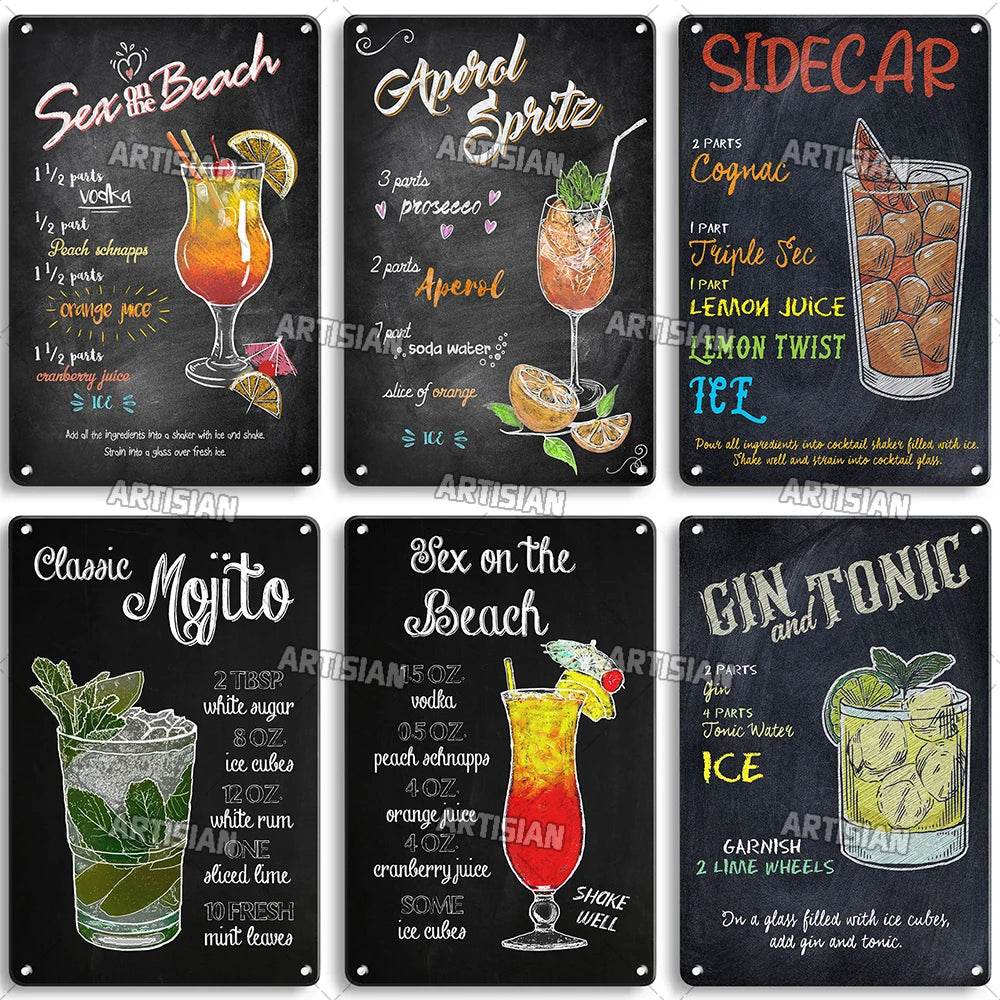 Sex on the Beach
1 1/2 parts
vodka
1/2 part
Peach schnapps
1 1/2 parts
orange juice
1 1/2 parts
cranberry juice
ICE
Add all the ingredients into a shaker with ice and shake.
Strain into a glass over fresh ice.
ARTISIAN
ARTISIAN
Aperol
Spritz
3 parts
prosecco
2 parts
Aperol
1 part
soda water
slice of orange
ICE
ARTISIAN
ARTISIAN
SIDECAR
2 PARTS
Cognac
1 PART
Triple Sec
1 PART
LEMON JUICE
LEMON TWIST
ICE
Pour all ingredients into cocktail shaker filled with ice.
Shake well and strain into cocktail glass.
ARTISIAN
ARTISIAN
ARTISIAN
ARTISIAN
Classic Mojito
2 TBSP
white sugar
8 OZ.
ice cubes
12 OZ.
white rum
ONE
sliced lime
10 FRESH
mint leaves
ARTISIAN
ARTISIAN
Sex on the
Beach
1.5 OZ.
vodka
0.5 OZ.
peach schnapps
4 OZ.
orange juice
4 OZ.
cranberry juice
SOME
ice cubes
SHAKE
WELL
ARTISIAN
ARTISIAN
GIN and TONIC
2 PARTS
Gin
4 PARTS
Tonic Water
ICE
GARNISH
2 LIME WHEELS
In a glass filled with ice cubes,
add gin and tonic.
ARTISIAN